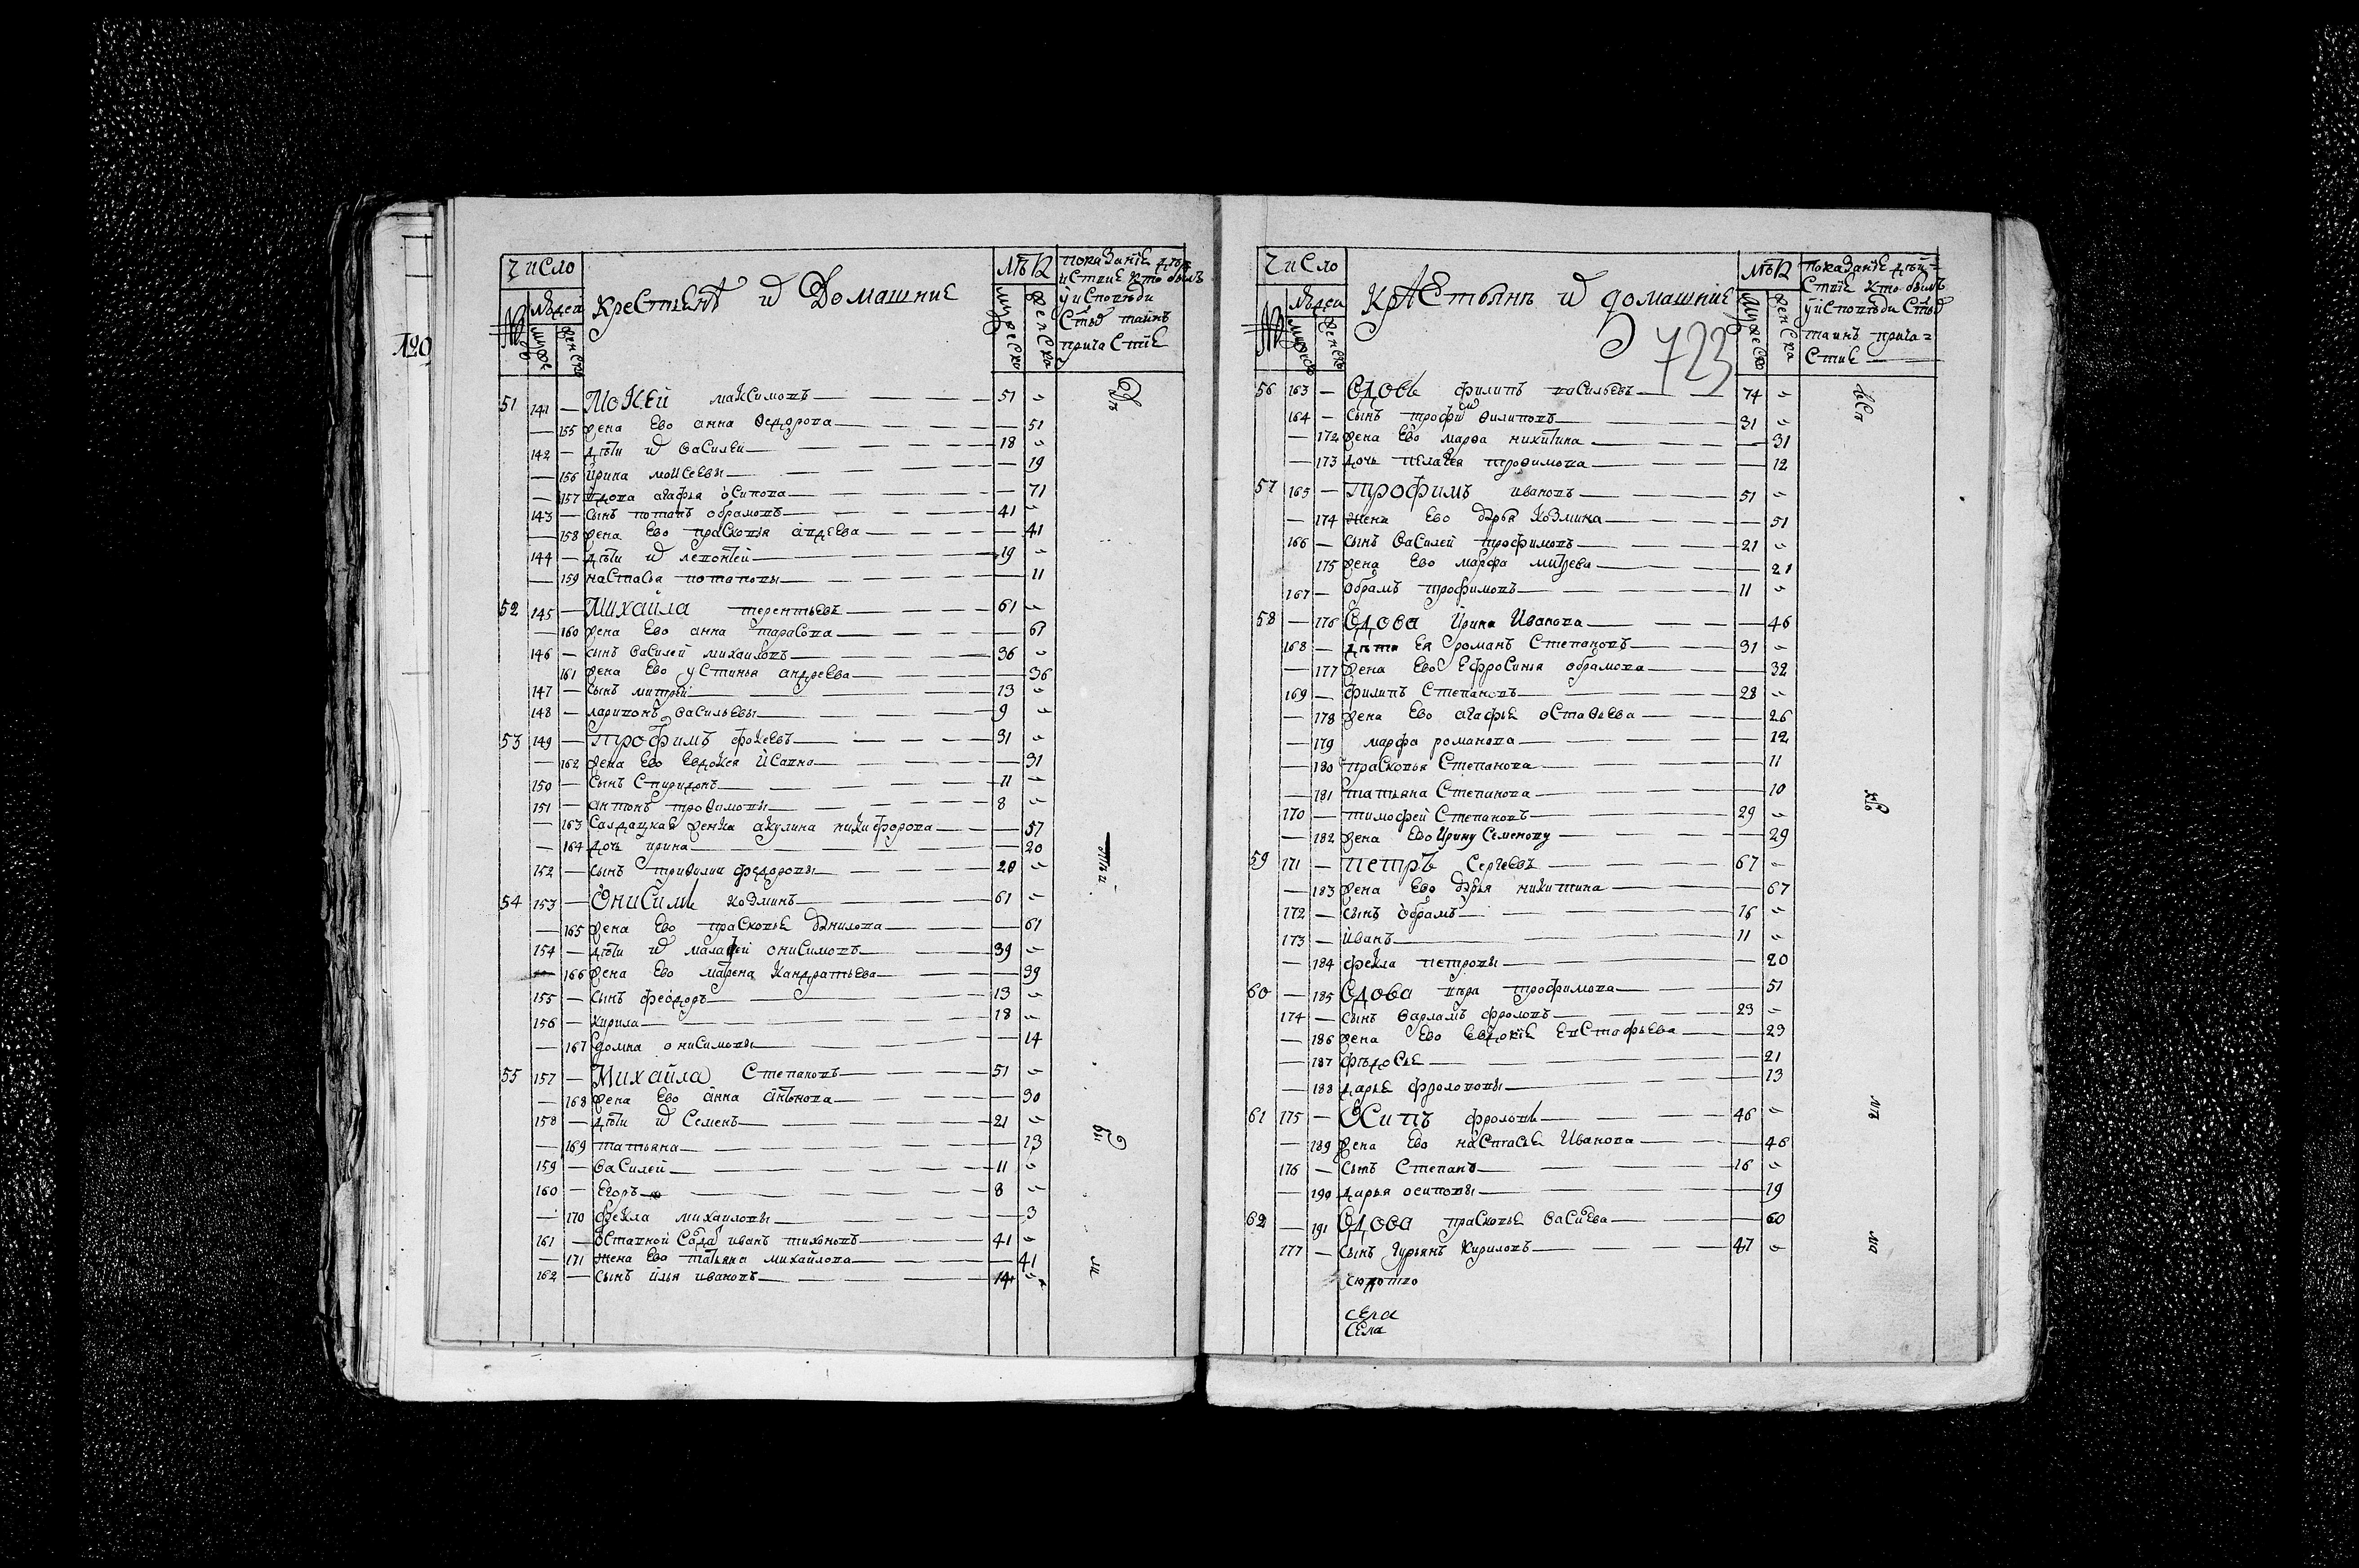 120
Число
Крестьянъ и Домашние
лѣта
показание дѣй
ствие кто былъ
у исповѣди
стыхъ таинъ
причастие
№
людей
мужеска
женска
мужеска
женска
51 141 — Мокей максимовъ 51 —
— 155 жена Ево анна Ѳедорова — 51
142 — дѣти их василей 18 —
— 156 ирина моисеевы — 19
— 157 вдова агафья осипова — 71
143 — сынъ потапъ обрамовъ 41 —
— 158 жена Ево прасковья авдеева — 41
144 — дѣти их левонтей 19 —
— 159 настасья потаповы — 11
52 145 — Михайла терентьевъ 61 —
— 160 жена Ево анна тарасова — 61
146 — сынъ василей михаиловъ 36 —
161 жена Ево устинья андреева — 36
147 — сынъ митрей 13 —
148 — ларивонъ васильевы 9 —
53 149 — Трофимъ фокеевъ 31 —
— 162 жена Ево Евдокея Исаева — 31
150 — сынъ Спиридонъ 11 —
151 — антонъ троѳимовы 8 —
— 163 Салдацкая женка акулина никифорова — 57
— 164 дочь ирина — 20
152 — сынъ триѳилии федоровы 20 —
54 153 — Онисимъ козминъ 61 —
— 165 жена Ево прасковье данилова — 61
154 — дѣти их малаѳей онисимовъ 39 —
— 166 жена Ево матрена Кандратьева — 39
155 — сынъ феодоръ 13 —
156 — кирила 18 —
— 167 домна онисимовы — 14
55 157 — Михайла Степановъ 51 —
— 168 жена Ево анна антонова — 30
158 — дѣти их Семенъ 21 —
— 169 татьяна — 13
159 — василей 11 —
160 — Егоръ 8 —
— 170 фекла михаиловы — 3
161 — отставной Салда иванъ тихоновъ 41 —
— 171 жена Ево татьяна михайлова — 41
162 — сынъ илья ивановъ 14 —
Число
Крастьянъ и домашние
723
лѣта
показание дѣй=
ствие кто былъ
у исповѣди стыхъ
таинъ прича=
стие
№
людей
мужеска
женска
мужеска
женска
56 163 — Вдовъ филипъ васильевъ 74 —
164 — сынъ трофимъ Ѳилиповъ 31 —
— 172 жена Ево марѳа никитина — 31
— 173 дочь пелагея троѳимова — 12
57 165 — Трофимъ ивановъ 51 —
— 174 жена Ево дарья Козмина — 51
166 — сынъ василей трофимовъ 21 —
175 жена Ево марфа митрева — 21
167 — обрамъ трофимовъ 11 —
58 — 176 Вдова Ирина Иванова — 46
168 — дѣти Ея романъ Степановъ 31 —
— 177 жена Ево Ефросинья обрамова — 32
169 — филипъ Степановъ 28 —
— 178 жена Ево агафье остаѳьева — 26
— 179 марфа романова — 12
— 180 прасковья Степанова — 11
— 181 татьяна Степанова — 10
170 — тимофей Степановъ 29 —
— 182 жена Ево Ирину Семенову — 29
59 171 — Петръ Сергеевъ 67 —
— 183 жена Ево дарья никитина — 67
172 — сынъ обрамъ 16 —
173 — иванъ 11 —
— 184 фекла петровы — 20
60 — 185 Вдова вера трофимова — 51
174 — сынъ варламъ фроловъ 23 —
— 186 жена Ево Евдокие Евстафьева — 23
— 187 фѣдосье — 21
— 188 дарье фроловы — 13
61 175 — Осипъ фроловъ 46 —
— 189 жена Ево настасье Иванова — 46
176 — сынъ Степанъ 16 —
— 190 дарья осиповы — 19
62 — 191 Вдова прасковье васильева — 60
177 — сынъ гурьянъ Кириловъ 47 —
села
села